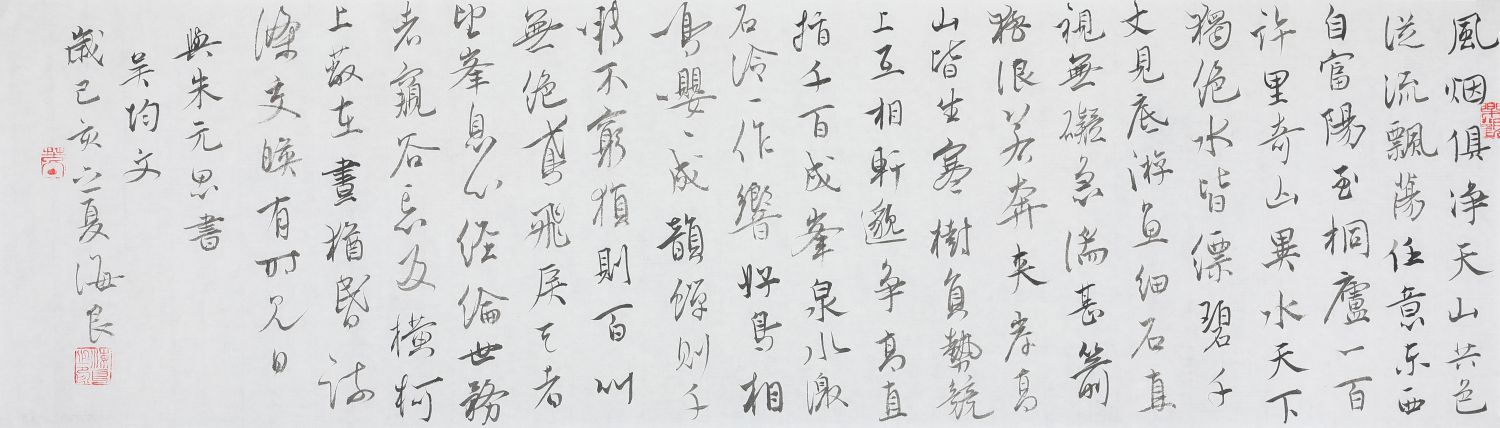 風烟俱净天山共色
從流飄蕩任意东西
自富陽至桐廬一百
许里奇山異水天下
獨绝水皆缥碧千
丈見底游鱼细石直
視無礙急湍甚箭
猛浪若奔夹岸高
山皆生寒樹負勢競
上互相軒邈争高直
指千百成峯泉水激
石泠〻作響好鳥相
鳴嚶〻成韻蟬则千
囀不窮猿則百叫
無绝鳶飛戾天者
望峯息心经纶世務
者窺谷忘反横柯
上蔽在晝猶昏疏
條交暎有时見日
與朱元思書
吴均文
歲己亥之夏海良